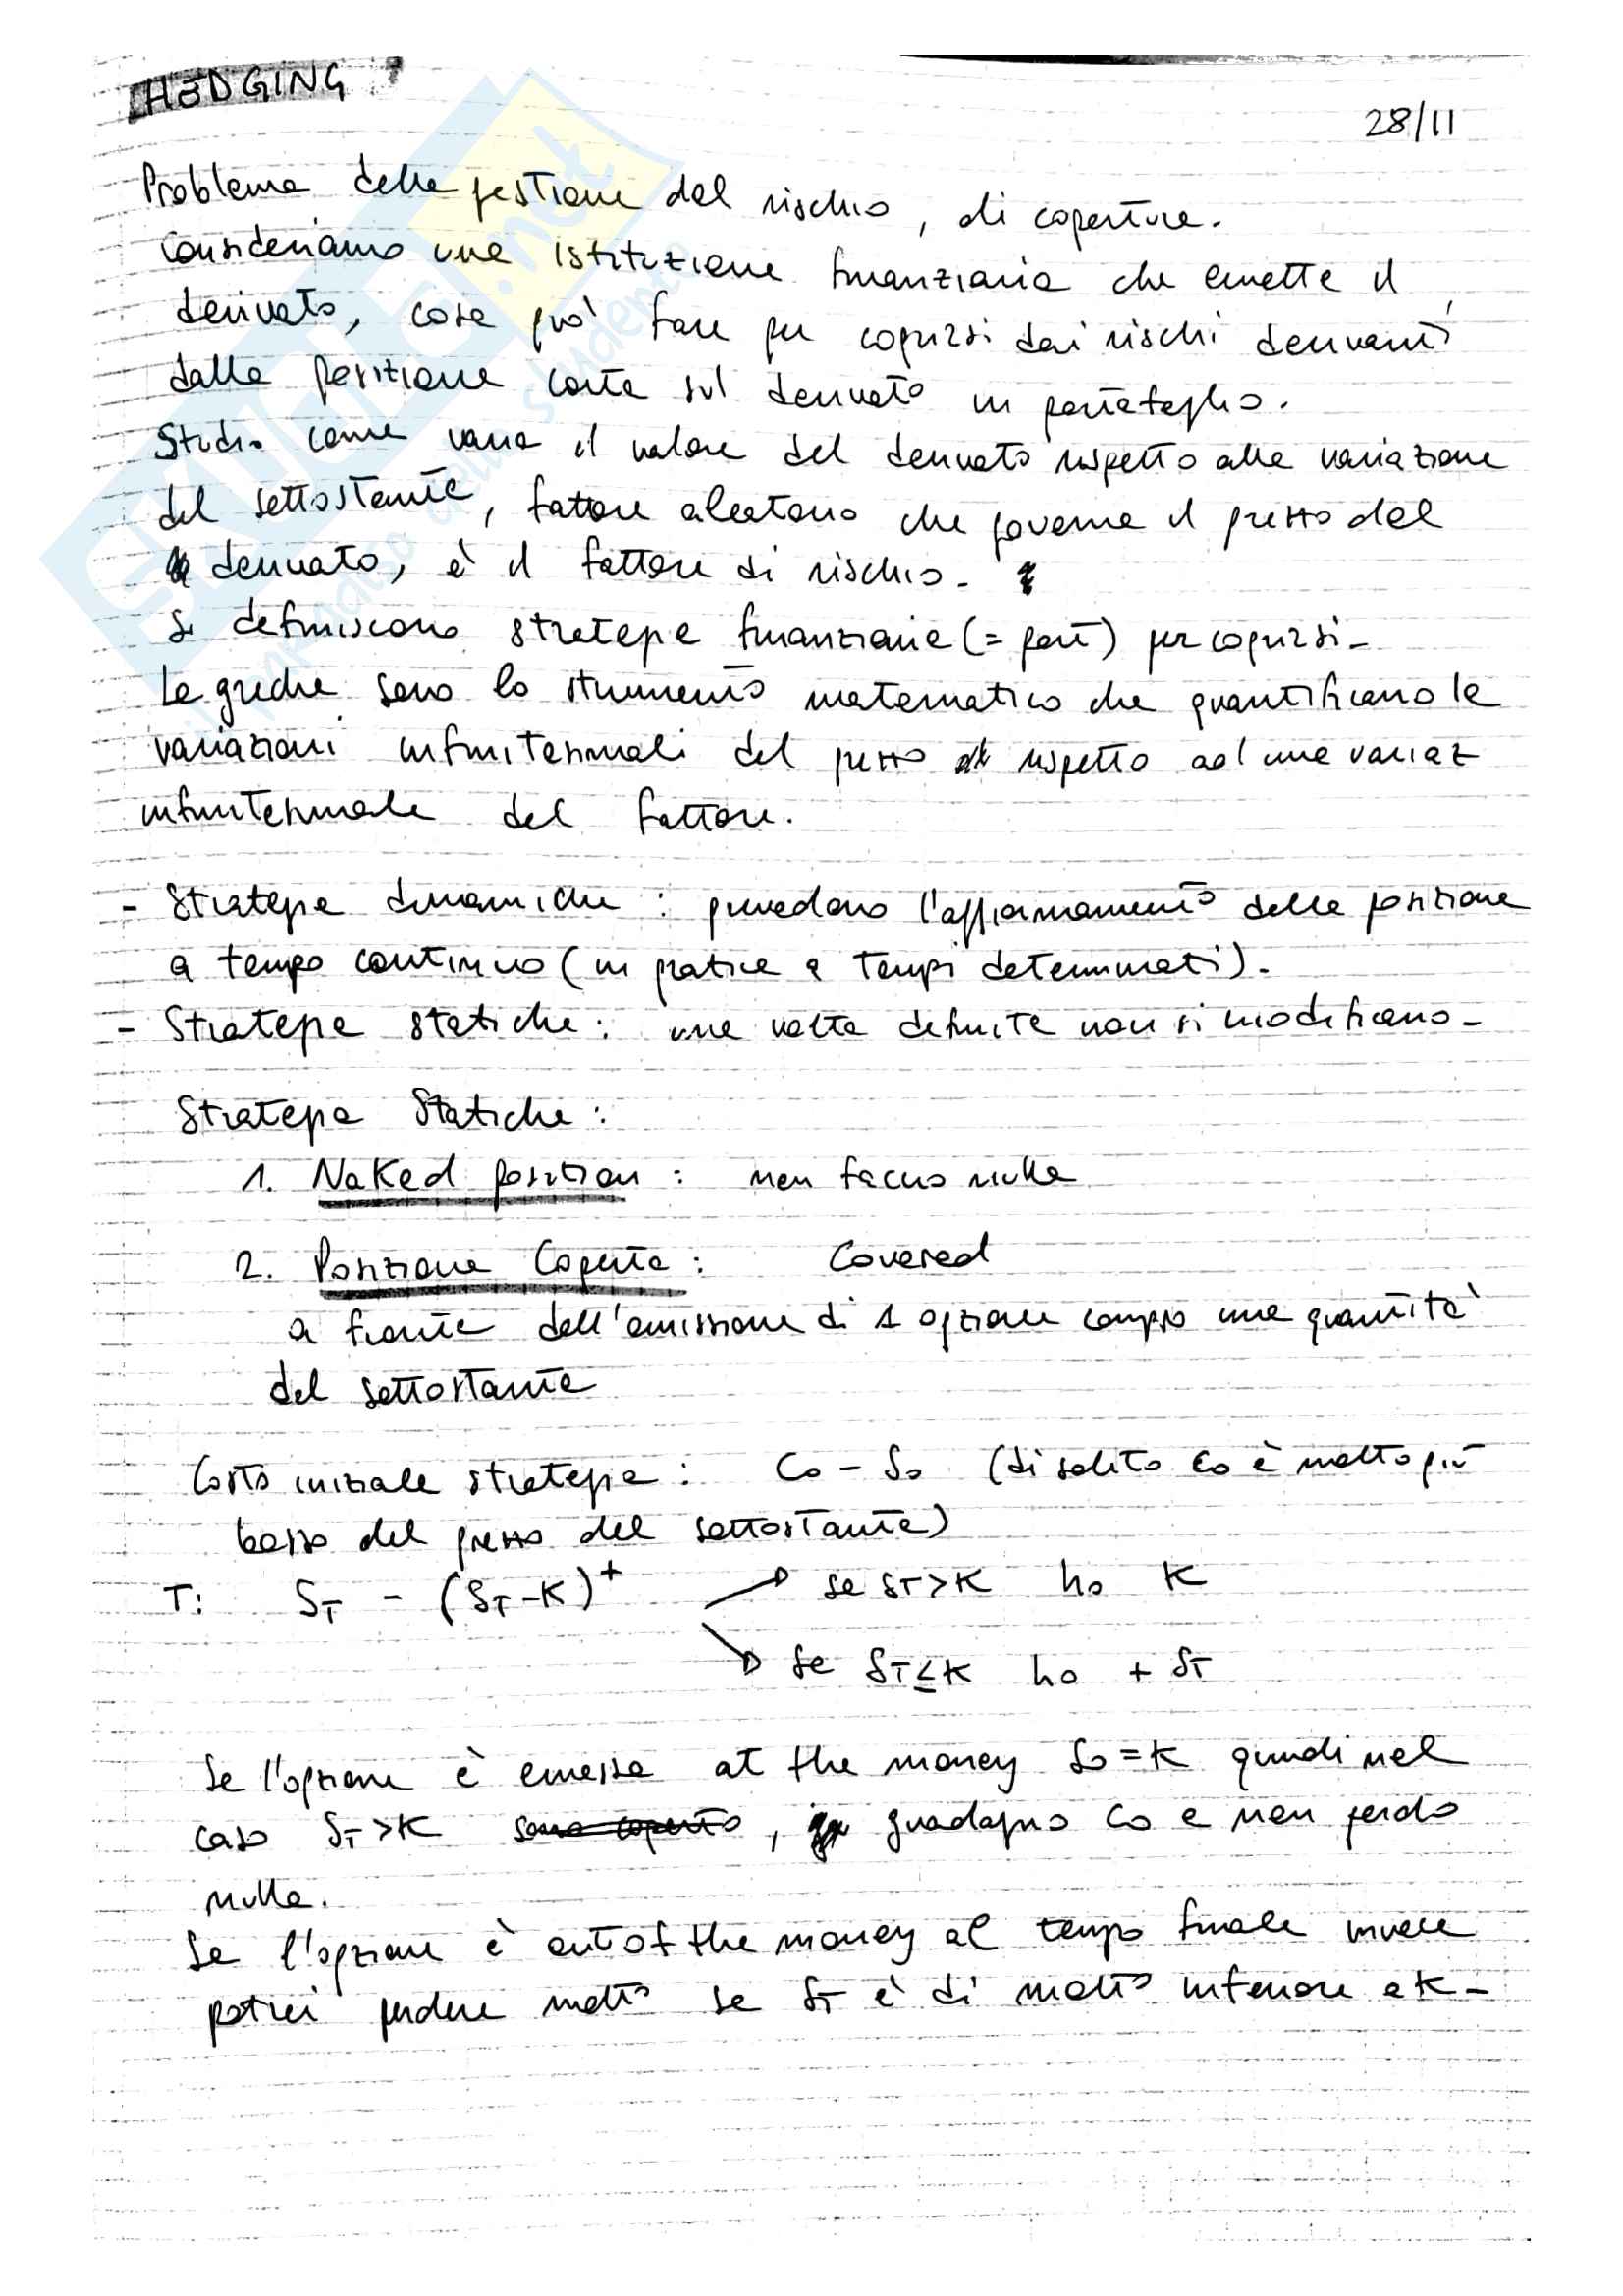 HEDGING
28/11
Problema della gestione del rischio, di copertura.
Consideriamo una istituzione finanziaria che emette il
derivato, cosa può fare per coprirsi dai rischi derivanti
dalla posizione corta sul derivato in portafoglio.
Studio come varia il valore del derivato rispetto alla variazione
del sottostante, fattore aleatorio che governa il prezzo del
derivato, è il fattore di rischio.
Si definiscono strategie finanziarie (= port) per coprirsi-
Le greche sono lo strumento matematico che quantificano le
variazioni infinitesimali del prezzo rispetto ad una variaz
infinitesimale del fattore.
- Strategie dinamiche : prevedono l'aggiornamento della posizione
a tempo continuo (in pratica a tempi determinati).
- Strategie statiche : una volta definite non si modificano-
Strategie Statiche :
1. Naked position : non faccio nulla
2. Posizione Coperta : Covered
a fronte dell'emissione di 1 opzione compro una quantità
del sottostante
Costo iniziale strategia : C0 - S0 (di solito C0 è molto più
basso del prezzo del sottostante)
T: ST - (ST-K)+ → se ST>K ho K
↘ se ST≤K ho + ST
Se l'opzione è emessa at the money S0=K quindi nel
caso ST>K sono coperto, guadagno C0 e non perdo
nulla.
Se l'opzione è out of the money al tempo finale invece
potrei perdere molto se ST è di molto inferiore a K-